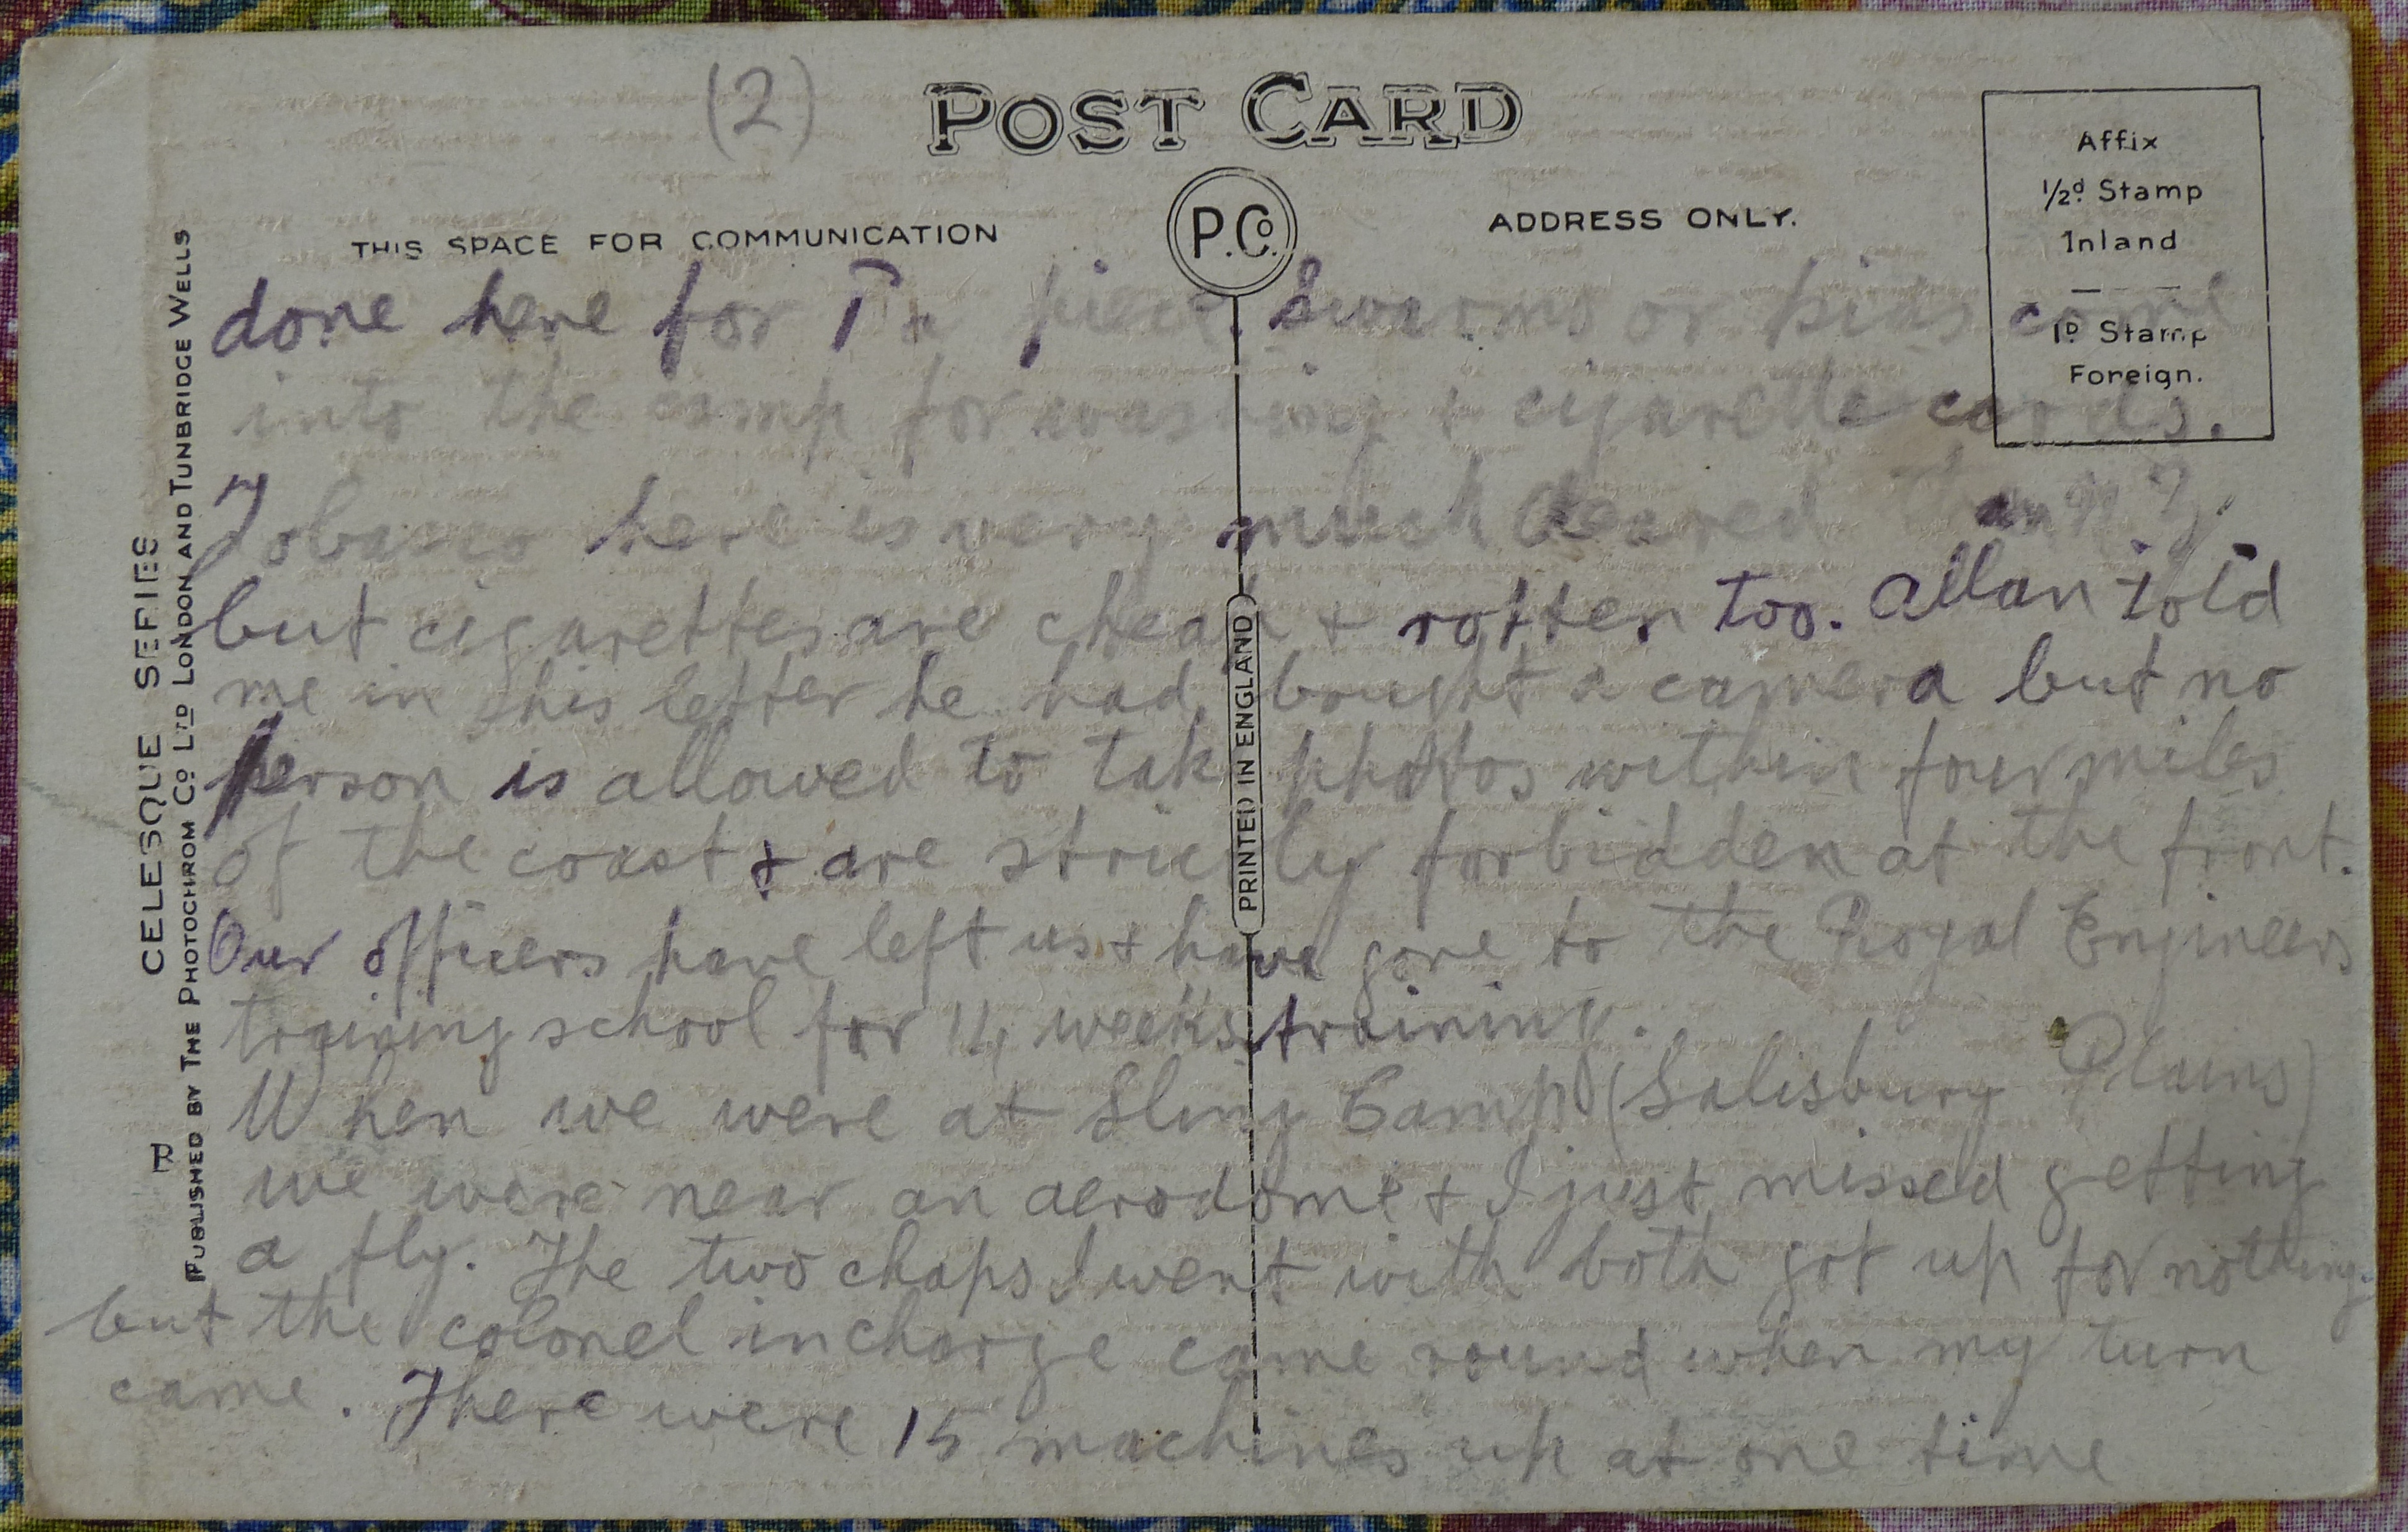 (2)
POST CARD
P.Co.
THIS SPACE FOR COMMUNICATION
ADDRESS ONLY.
Affix
1/2d Stamp
Inland
1D Stamp
Foreign.
CELESQUE SERIES
PUBLISHED BY THE PHOTOCHROM Co LTD LONDON AND TUNBRIDGE WELLS
PRINTED IN ENGLAND
done here for a piece. Swarms or kids come
into the camp for washing & cigarette cards.
Tobacco here is very much deared than N Z.
but cigarettes are cheap & rotten too. Allan told
me in his letter he had bought a camera but no
person is allowed to take photos within four miles
of the coast & are strictly forbidden at the front.
Our officers have left us & have gone to the Royal Engineers
training school for weeks training.
When we were at Sling Camp (Salisbury Plains)
we were near an aerodome & I just missed getting
a fly. The two chaps I went with both got up for nothing.
but the colonel in charge came round when my turn
came. There were 15 machines up at one time